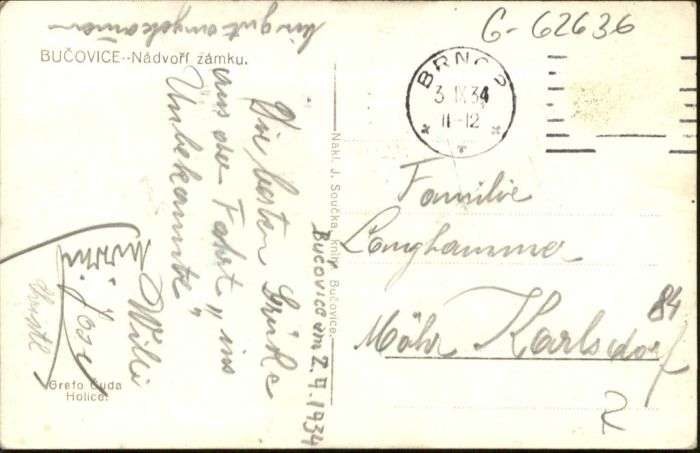 Bin gut angekommen
G-62636
BUČOVICE--Nádvoří zámku.
BRNO 2
3 IX 34
11-12
Die besten Grüße
aus der Fahrt „ins
Unbekannte"
Willi
Josef
Christl
Nakl. J. Součka, knihy Bučovice.
Bučovice am 2.9.1934
Familie
Langhammer
Mähr Karlsdorf
84
2
Grefo Čuda
Holice.